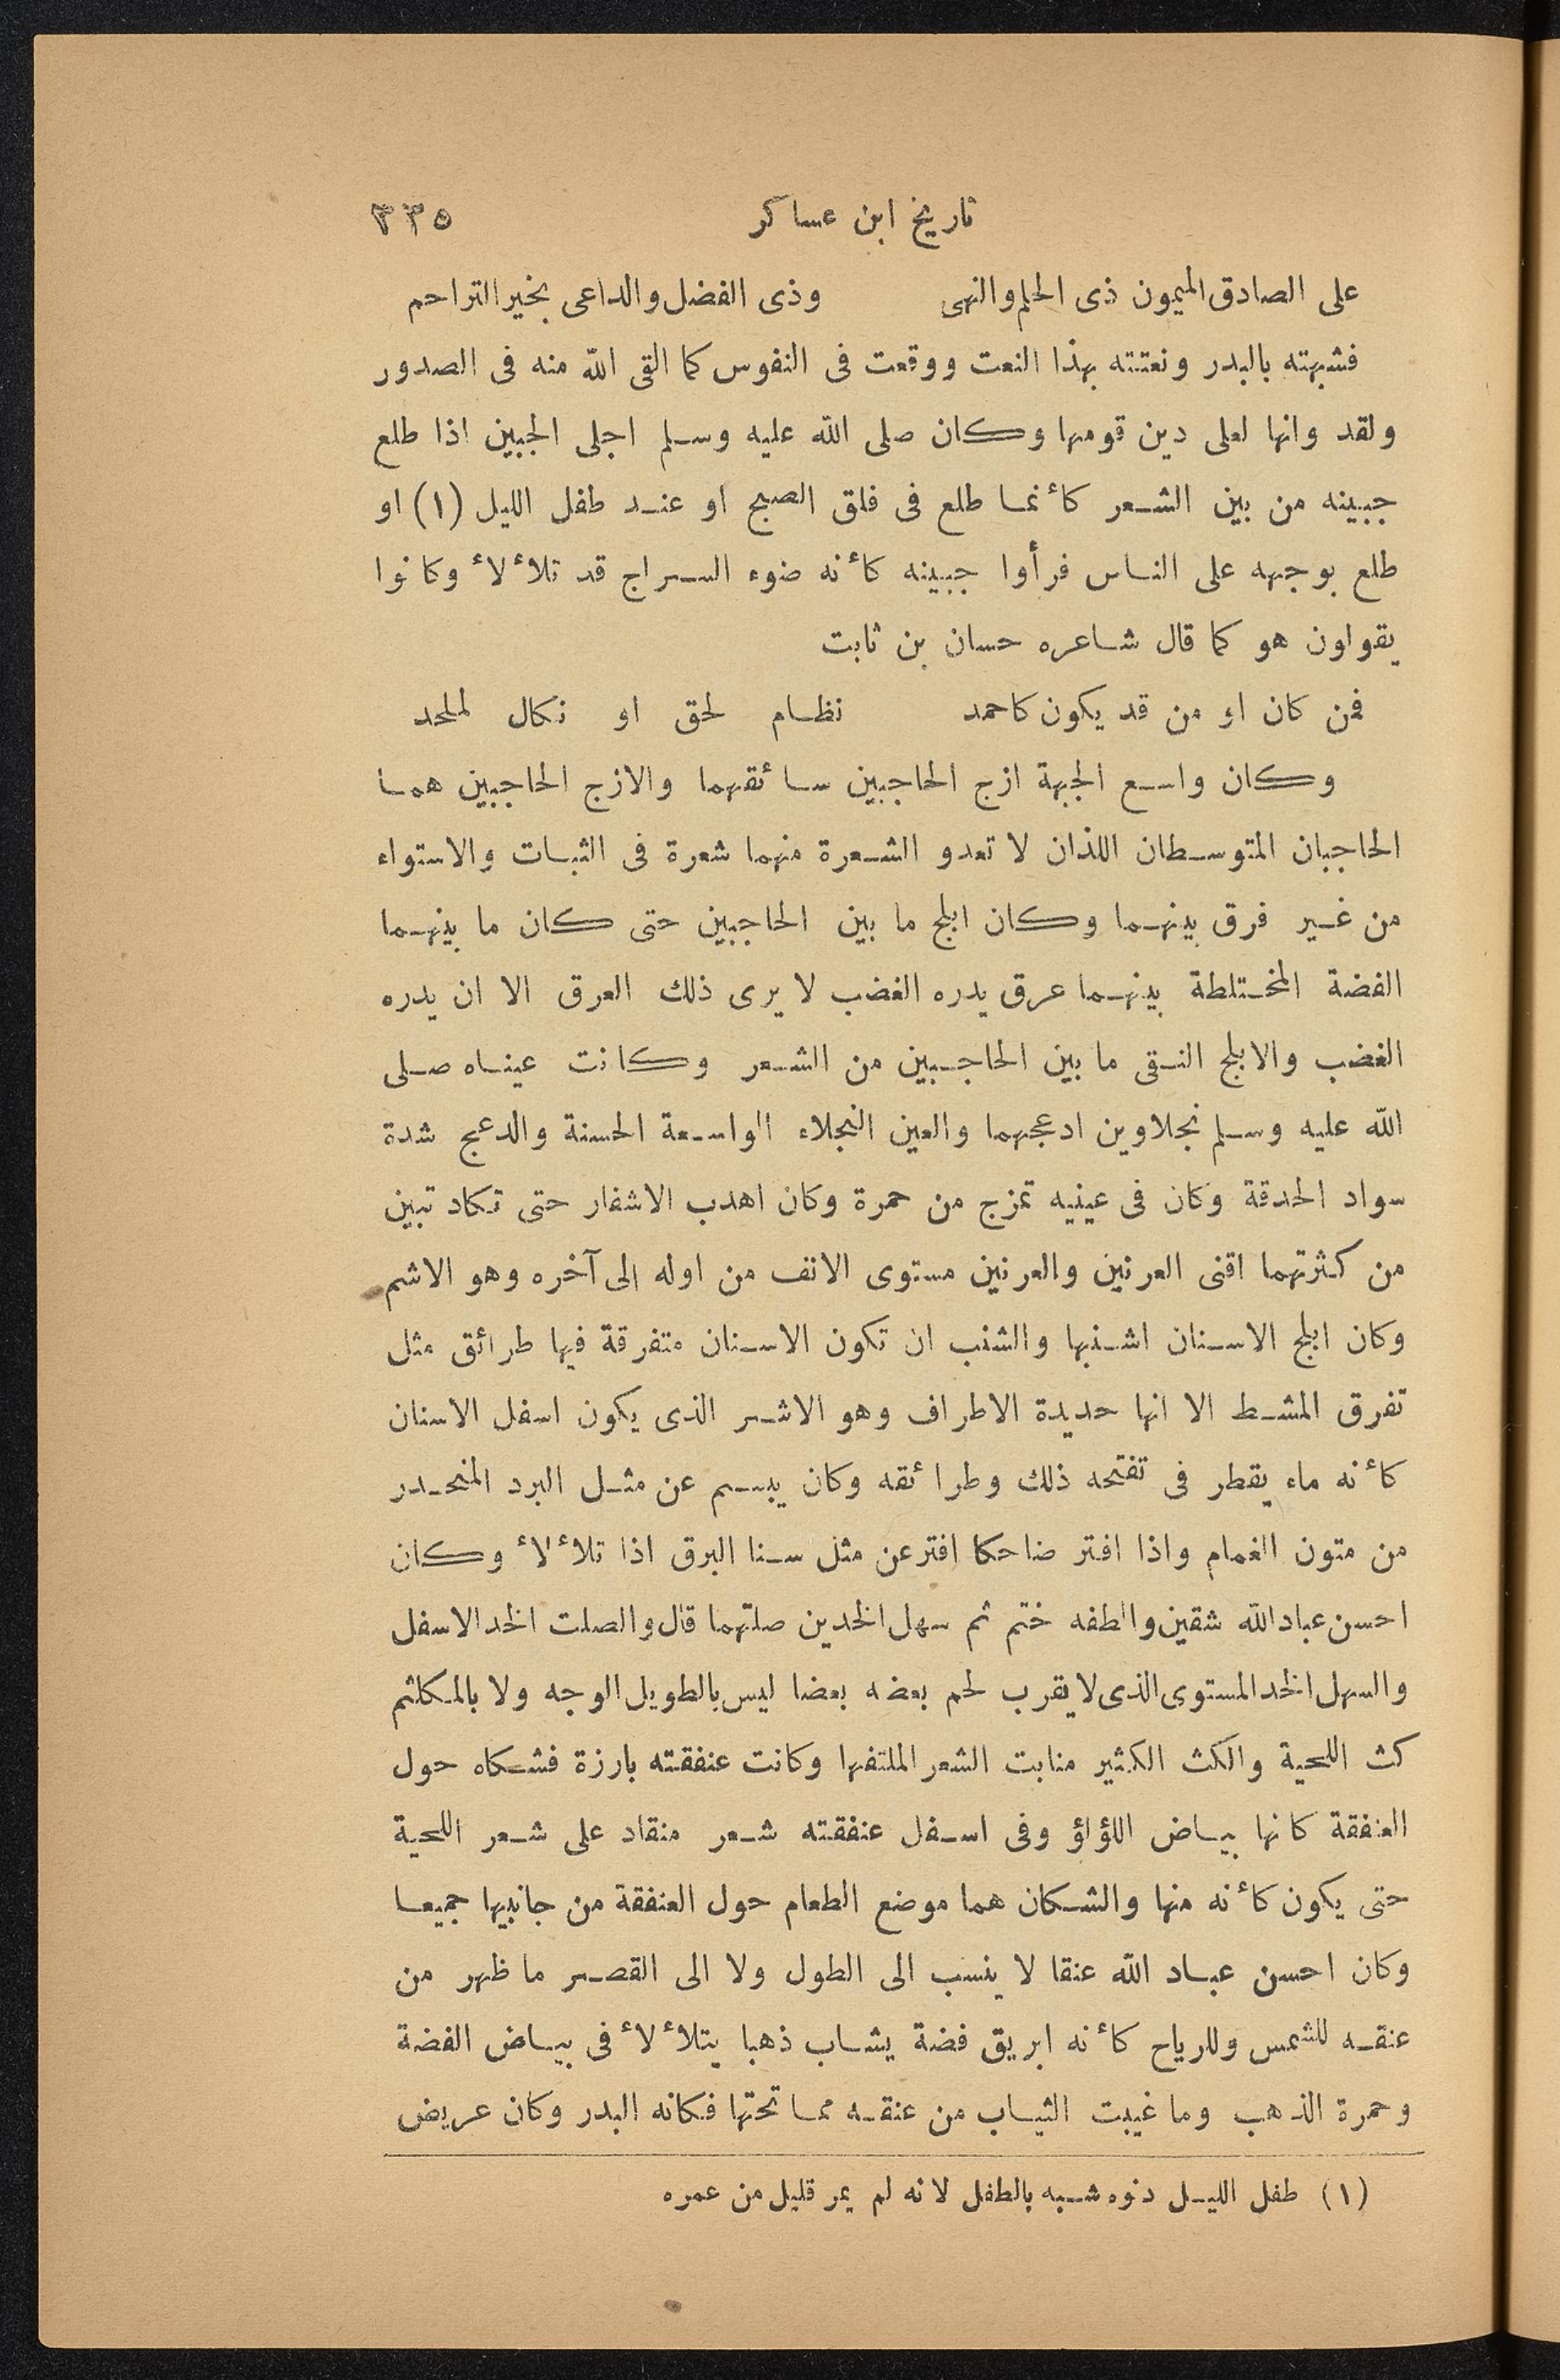 تاريخ ابن عساكر ٣٣٥
على الصادق الميمون ذى الحلم والنهى وذى الفضل والداعى بخير التراحم
فشبهته بالبدر ونعتته بهذا النعت ووقعت فى النفوس كما القى الله منه فى الصدور
ولقد وانها لعلى دين قومها وكان صلى الله عليه وسلم اجلى الجبين اذا طلع
جبينه من بين الشعر كأنما طلع فى فلق الصبح او عند طفل الليل (١) او
طلع بوجهه على الناس فرأوا جبينه كأنه ضوء السراج قد تلأ لأ وكانوا
يقواون هو كما قال شاعره حسان بن ثابت
فمن كان او من قد يكون كاحمد نظام لحق او نكال لملحد
وكان واسع الجبهة ازج الحاجبين سائقهما والازج الحاجبين هما
الحاجبان المتوسطان اللذان لا تعدو الشعرة منهما شعرة فى الثبات والاستواء
من غير فرق بينهما وكان ابلج ما بين الحاجبين حتى كان ما بينهما
الفضة المختلطة بينهما عرق يدره الغضب لا يرى ذلك العرق الا ان يدره
الغضب والابلج النقى ما بين الحاجبين من الشعر وكانت عيناه صلى
الله عليه وسلم نجلاوين ادعجهما والعين النجلاء الواسعة الحسنة والدعج شدة
سواد الحدقة وكان فى عينيه تمزج من حمرة وكان اهدب الاشفار حتى تكاد تبين
من كثرتهما اقنى العرنين والعرنين مستوى الانف من اوله الى آخره وهو الاشم
وكان ابلج الاسنان اشنبها والشنب ان تكون الاسنان متفرقة فيها طرائق مثل
تفرق المشط الا انها حديدة الاطراف وهو الاشر الذى يكون اسفل الاسنان
كأنه ماء يقطر فى تفتحه ذلك وطرائقه وكان يبسم عن مثل البرد المنحدر
من متون الغمام واذا افتر ضاحكا افتر عن مثل سنا البرق اذا تلأ لأ وكان
احسن عباد الله شقين والطفه ختم ثم سهل الخدين صلتهما قال والصلت الخد الاسفل
والسهل الخد المستوى الذى لا يقرب لحم بعضه بعضا ليس بالطويل الوجه ولا بالمكلثم
كث اللحية والكث الكثير منابت الشعر الملتفها وكانت عنفقته بارزة فشكاه حول
العنفقة كانها بياض اللؤاؤ وفى اسفل عنفقته شعر منقاد على شعر اللحية
حتى يكون كأنه منها والشكان هما موضع الطعام حول العنفقة من جانبيها جميعا
وكان احسن عباد الله عنقا لا ينسب الى الطول ولا الى القصر ما ظهر من
عنقه للشمس وللرياح كأنه ابريق فضة يشاب ذهبا يتلأ لأ فى بياض الفضة
وحمرة الذهب وما غيبت الثياب من عنقه مما تحتها فكانه البدر وكان عريض
(١) طفل الليل دنوه شبه بالطفل لانه لم يمر قليل من عمره